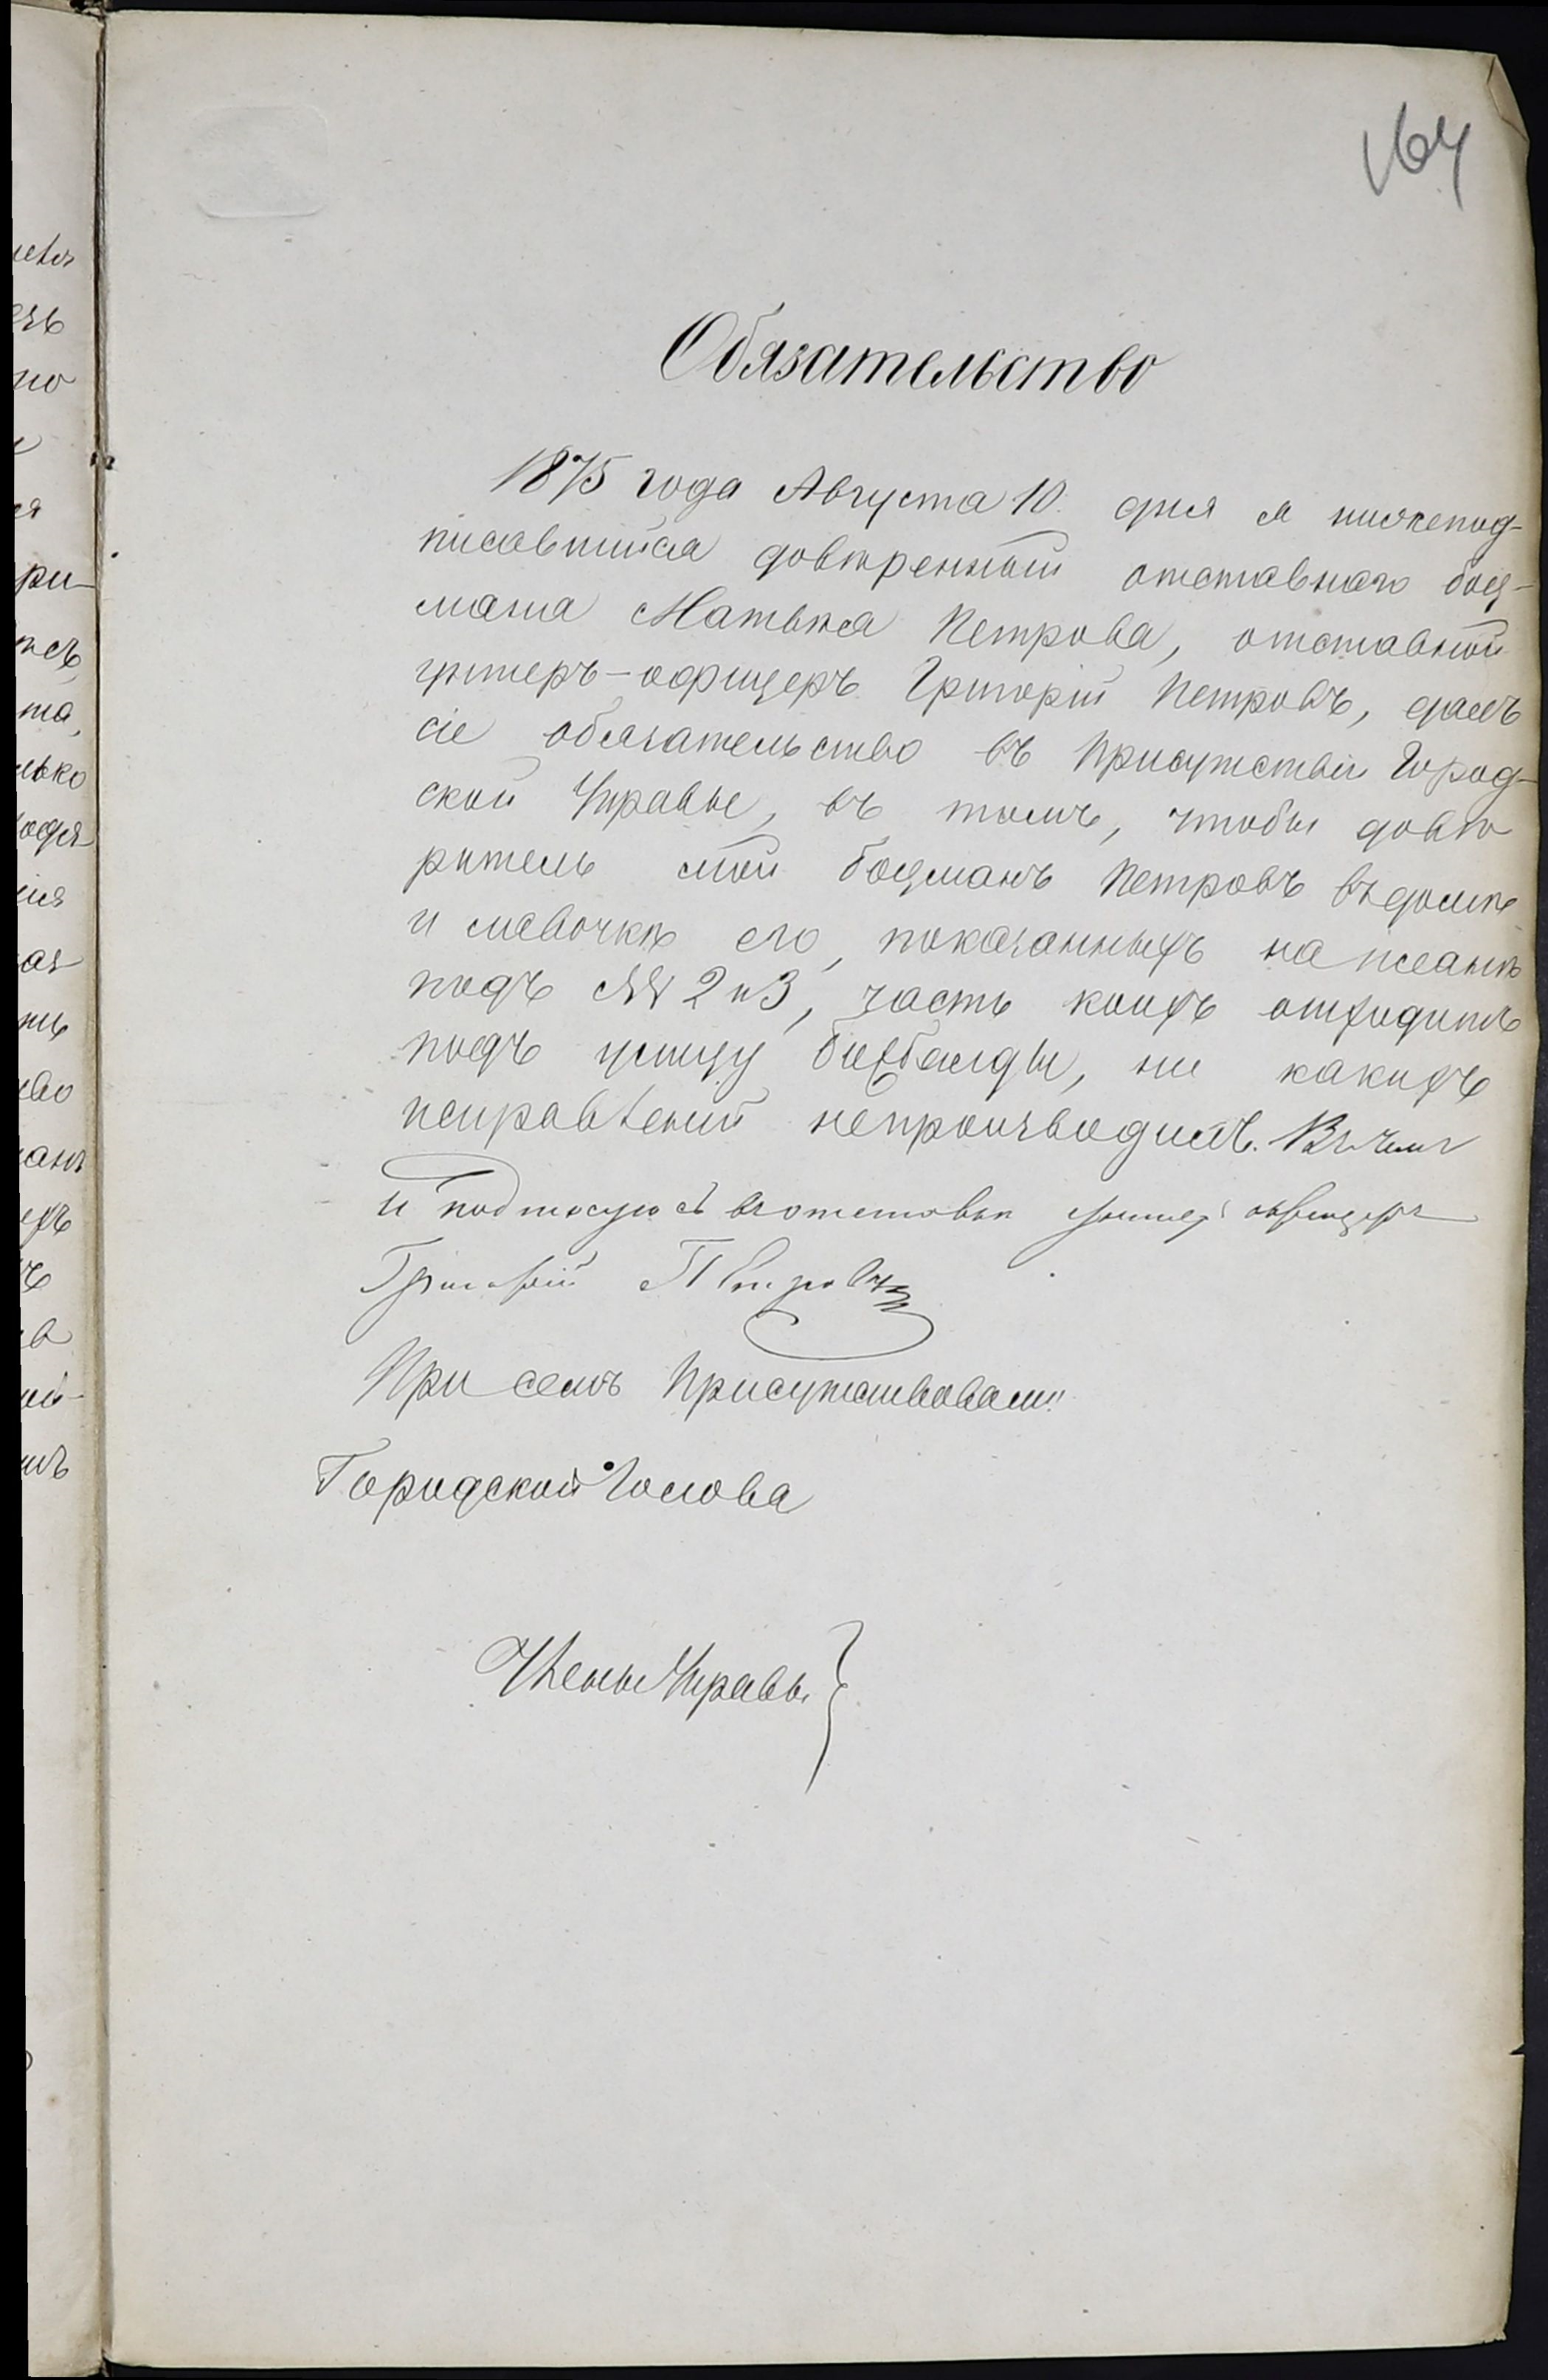 164
Обязательство
1875 года Августа 10 дня я нижепод-
писавшийся довѣренный отставнаго боц-
мана Матвѣя Петрова, отставной
унтеръ-офицеръ Григорій Петровъ, далъ
сіе обязательство въ присутствіи Город-
ской Управы, въ томъ, чтобы довѣ
ритель мой боцманъ Петровъ въ домѣ
и лавочкѣ его, показанныхъ на планѣ
подъ №№ 2 и 3, часть коихъ отходитъ
подъ улицу , ни какихъ
исправленій непроизводилъ. Въ чемъ
и подписуюсь отставной унтер офицеръ
Григорій Петровъ
При семъ присутствовали:
Городской Голова
Члены Управы